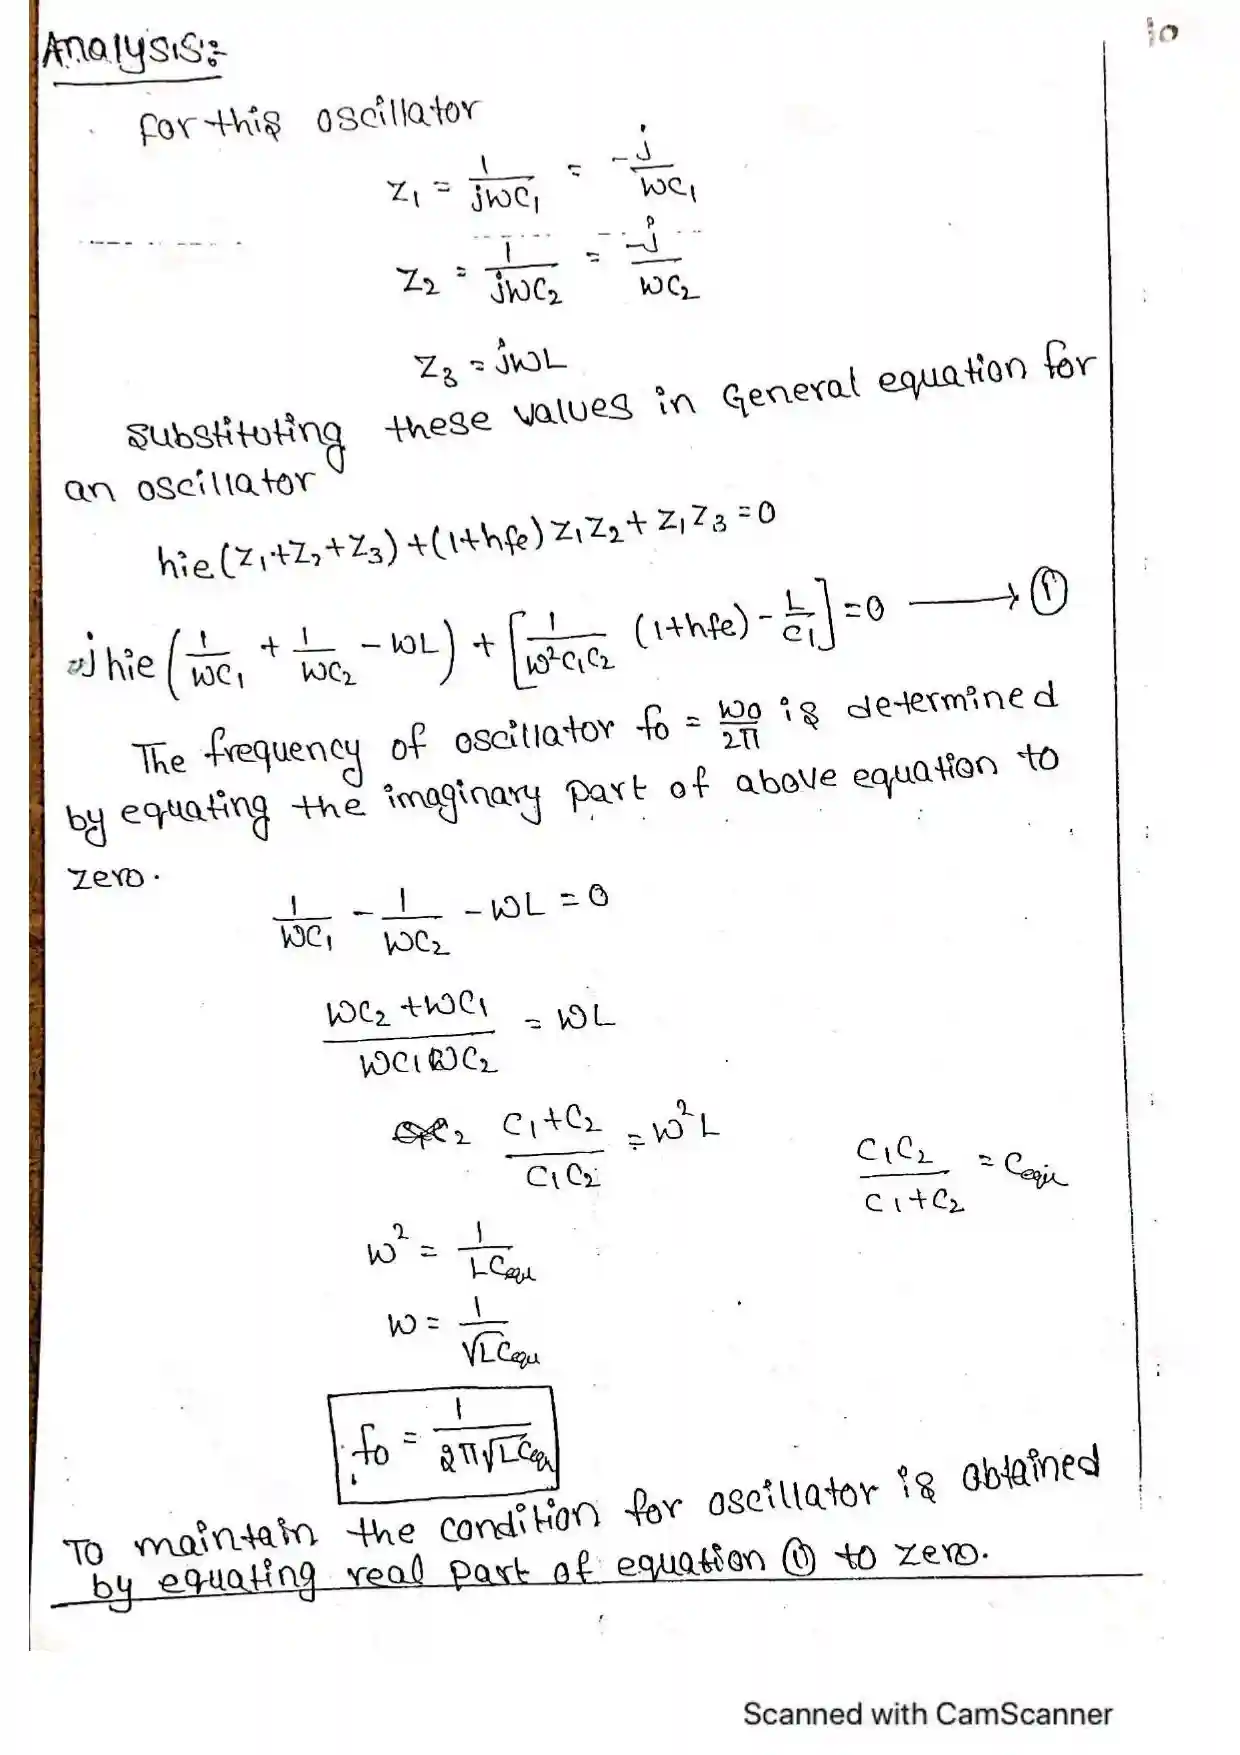 10
Analysis:-
for this oscillator
Z₁ = 1/jωC₁ = -j/ωC₁
Z₂ = 1/jωC₂ = -j/ωC₂
Z₃ = jωL
Substituting these values in General equation for
an oscillator
hie(Z₁+Z₂+Z₃)+(1+hfe)Z₁Z₂+Z₁Z₃=0
-jhie(1/ωC₁ + 1/ωC₂ - ωL) + [1/ω²C₁C₂ (1+hfe) - L/C₁]=0 ⟶ ①
The frequency of oscillator fo = ωo/2π is determined
by equating the imaginary part of above equation to
zero.
1/ωC₁ - 1/ωC₂ - ωL = 0
(ωC₂+ωC₁)/(ωC₁ωC₂) = ωL
(C₁+C₂)/(C₁C₂) = ω²L
C₁C₂/(C₁+C₂) = Cequ
ω² = 1/LCequ
ω = 1/√LCequ
fo = 1/2π√LCequ
To maintain the condition for oscillator is obtained
by equating real part of equation ① to zero.
Scanned with CamScanner